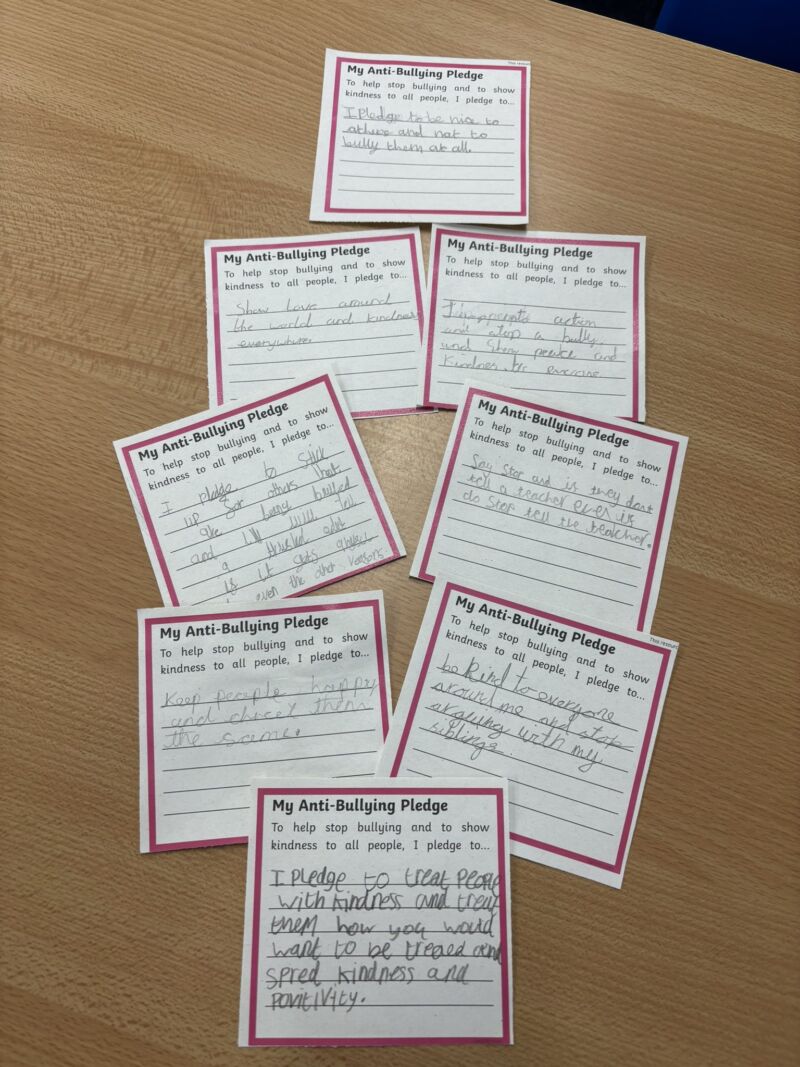 My Anti-Bullying Pledge
To help stop bullying and to show
kindness to all people, I pledge to...
I Pledge to be nice to
and not to
bully them at all.
My Anti-Bullying Pledge
To help stop bullying and to show
kindness to all people, I pledge to...
Show love around
the world and kindness
everywhere.
My Anti-Bullying Pledge
To help stop bullying and to show
kindness to all people, I pledge to...
action
and stop a bully
and peace and
Kindness
My Anti-Bullying Pledge
To help stop bullying and to show
kindness to all people, I pledge to...
I pledge to stick
up for others that
are being
and I will tell
a adult
it gets
even the other reasons.
My Anti-Bullying Pledge
To help stop bullying and to show
kindness to all people, I pledge to...
Say Stop and they dont
tell a teacher
do Stop tell the teacher.
My Anti-Bullying Pledge
To help stop bullying and to show
kindness to all people, I pledge to...
Keep people happy
and them
the same.
My Anti-Bullying Pledge
To help stop bullying and to show
kindness to all people, I pledge to...
be kind to everyone
around me and stop
arguing with my
siblings
My Anti-Bullying Pledge
To help stop bullying and to show
kindness to all people, I pledge to...
I Pledge to treat People
with kindness and treat
them how you would
want to be treaed and
spred kindness and
povitivity.